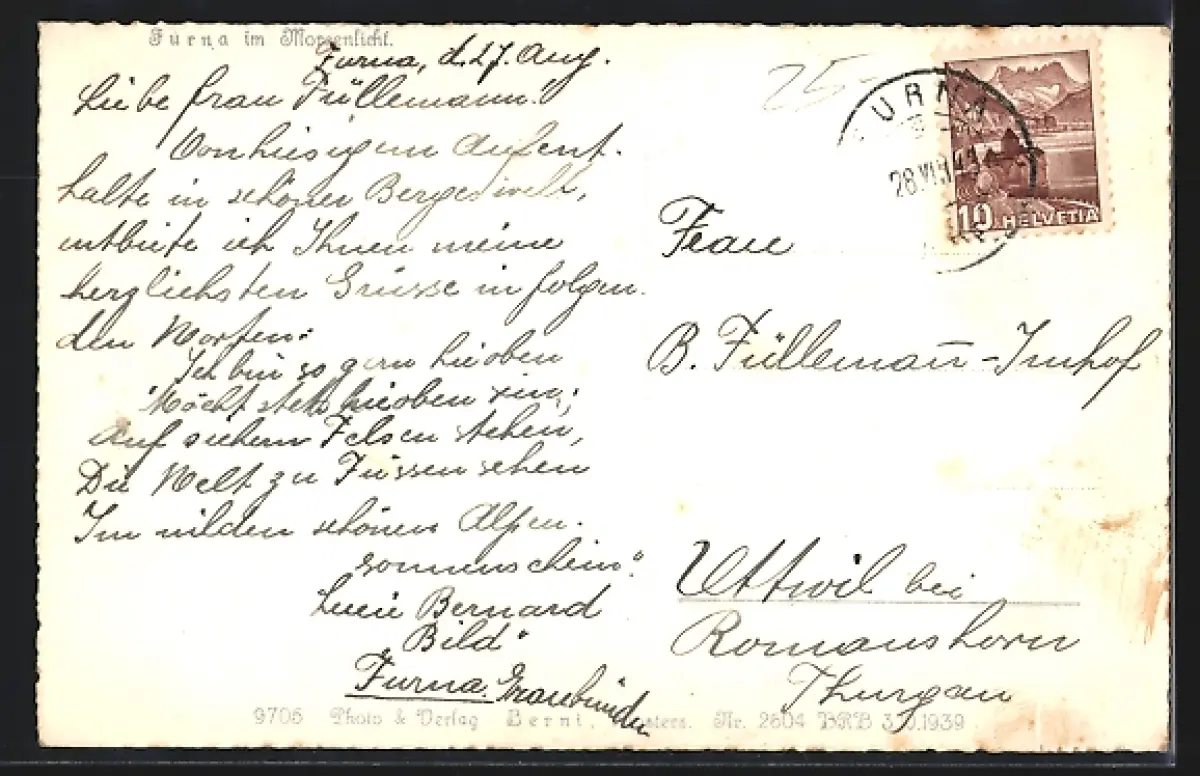 Furna im Morgenlicht.
Furna, d. 27. Aug.
Liebe Frau Füllemann!
Von hiesigem Aufent-
halte in schöner Bergeswelt,
entbiete ich Ihnen meine
herzlichsten Grüsse in folgen-
den Worten:
Ich bin so gern hieoben
Möcht stets hieoben sein;
Auf sichern Felsen stehen,
Die Welt zu Füssen sehen
Im milden schönen Alpen-
sonnenschein."
Bernard
Bild
Furna Graubünden
25-
FURNA
28.VIII.41
10 HELVETIA
Frau
B. Füllemañ-Imhof
Uttwil bei
Romanshorn
Thurgau
9705 Photo & Verlag Berni, Klosters. Nr. 2804 BRB 3.10.1939